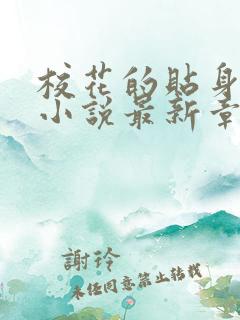 校花的貼身
小說最新章
謝玲
未经同意禁止转载